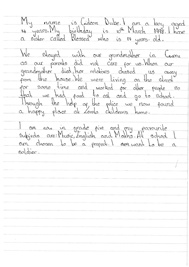 My name is Dube. I am a boy aged
14 years. My birthday is on March 1998. I have
a sister called who is 17 years old.
We stayed with our grandmother in
as our parents did not care for us. When our
grandmother died her relatives chased us away
from this house. We were living on the street
for some time and worked for other people so
that we had food to eat and go to school.
Through the help of the police we now found
a happy place at childrens home.
I am now in grade five and my favourite
subjects are Music, English and Maths. At school I
am chosen to be a prefect. I want to be a
soldier.